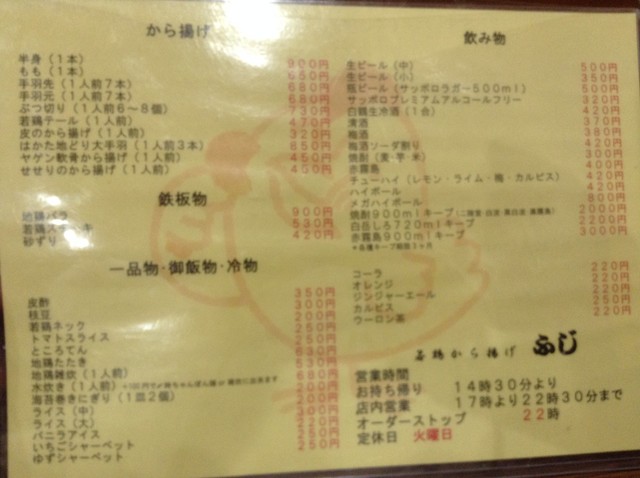 から揚げ
半身（１本） 900円
もも（１本） 650円
手羽先（１人前７本） 680円
手羽元（１人前７本） 680円
ぶつ切り（１人前６～８個） 730円
若鶏テール（１人前） 470円
皮のから揚げ（１人前） 320円
はかた地どり大手羽（１人前３本） 850円
ヤゲン軟骨から揚げ（１人前） 450円
せせりのから揚げ（１人前） 450円
鉄板物
地鶏バラ 900円
若鶏ステーキ 530円
砂ずり 420円
一品物・御飯物・冷物
皮酢 350円
枝豆 300円
若鶏ネック 200円
トマトスライス 250円
ところてん
地鶏たたき
地鶏雑炊（１人前）
水炊き（１人前）
海苔巻きにぎり（１皿２個）
ライス（中）
ライス（大）
バニラアイス
いちごシャーベット 250円
ゆずシャーベット 250円
飲み物
生ビール（中） 500円
生ビール（小） 350円
瓶ビール（サッポロラガー５００ml） 500円
サッポロプレミアムアルコールフリー 320円
白鶴生冷酒（１合） 420円
清酒 370円
梅酒 380円
梅酒ソーダ割り 420円
焼酎（麦・芋・米） 300円
赤霧島 400円
チューハイ（レモン・ライム・梅・カルピス） 420円
ハイボール 420円
メガハイボール 800円
焼酎９００mlキープ 2000円
白岳しろ７２０mlキープ 2200円
赤霧島９００mlキープ 3000円
コーラ 220円
オレンジ 220円
ジンジャーエール 220円
カルピス 250円
ウーロン茶 220円
若鶏から揚げ ふじ
営業時間
お持ち帰り １４時３０分より
店内営業 １７時より２２時３０分まで
オーダーストップ ２２時
定休日 火曜日